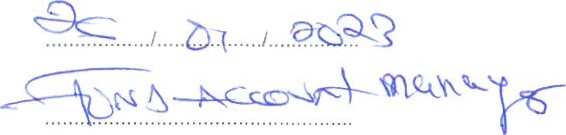 25 / 01 / 2023
FUND-ACCOUNT manager